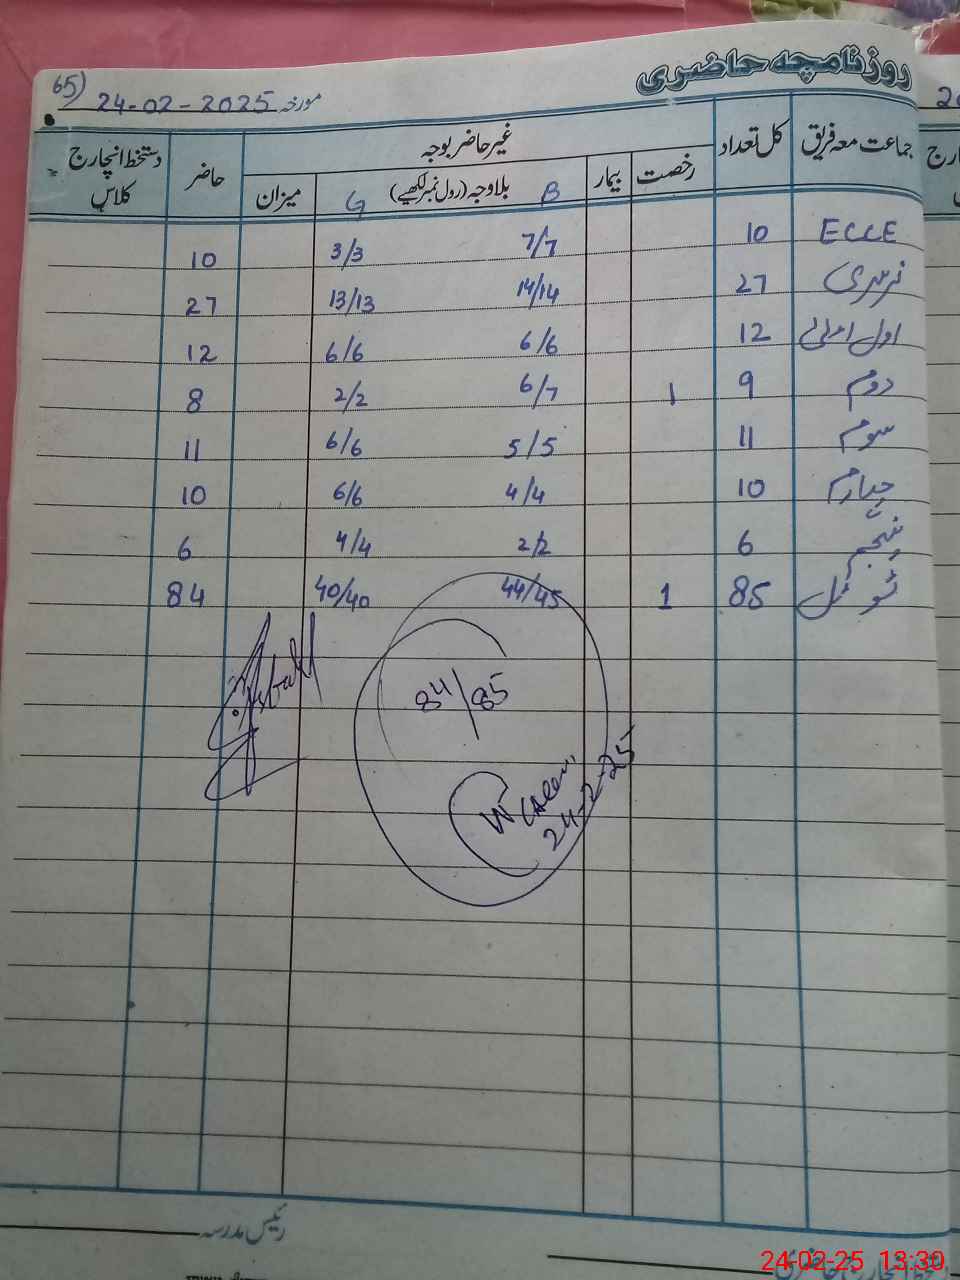 روزنامچہ حاضری
65) مورخہ 24-02-2025
جماعت معہ فریق کل تعداد غیر حاضر بوجہ حاضر دستخط انچارج کلاس
رخصت بیمار B بلاوجہ (رول نمبر لکھیے) G میزان
ECCE 10 7/7 3/3 10
نرسری 27 14/14 13/13 27
اول اعلیٰ 12 6/6 6/6 12
دوم 9 1 6/7 2/2 8
سوم 11 5/5 6/6 11
چہارم 10 4/4 6/6 10
پنجم 6 2/2 4/4 6
ٹوٹل 85 1 44/45 40/40 84
84/85
24-2-25
رئیس مدرسہ
24-02-25 13:30